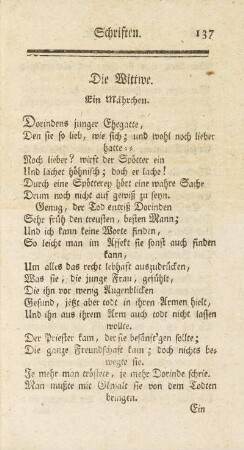 Schriften. 137
Die Wittwe.
Ein Mährchen.
Dorindens junger Ehegatte,
Den sie so lieb, wie sich; und wohl noch lieber
hatte --
Noch lieber? wirft der Spötter ein
Und lachet höhnisch; doch er lache!
Durch eine Spötterey hört eine wahre Sache
Drum noch nicht auf gewiß zu seyn.
Genug, der Tod entriß Dorinden
Sehr früh den treusten, besten Mann;
Und ich kann keine Worte finden,
So leicht man im Affekt sie sonst auch finden
kann,
Um alles das recht lebhaft auszudrücken,
Was sie, die junge Frau, gefühlt,
Die ihn vor wenig Augenblicken
Gesund, jetzt aber todt in ihren Armen hielt,
Und ihn aus ihrem Arm auch todt nicht lassen
wollte.
Der Priester kam, der sie besänft'gen sollte;
Die ganze Freundschaft kam; doch nichts be-
wegte sie.
Je mehr man tröstete, je mehr Dorinde schrie.
Man mußte mit Gewalt sie von dem Todten
bringen.
Ein